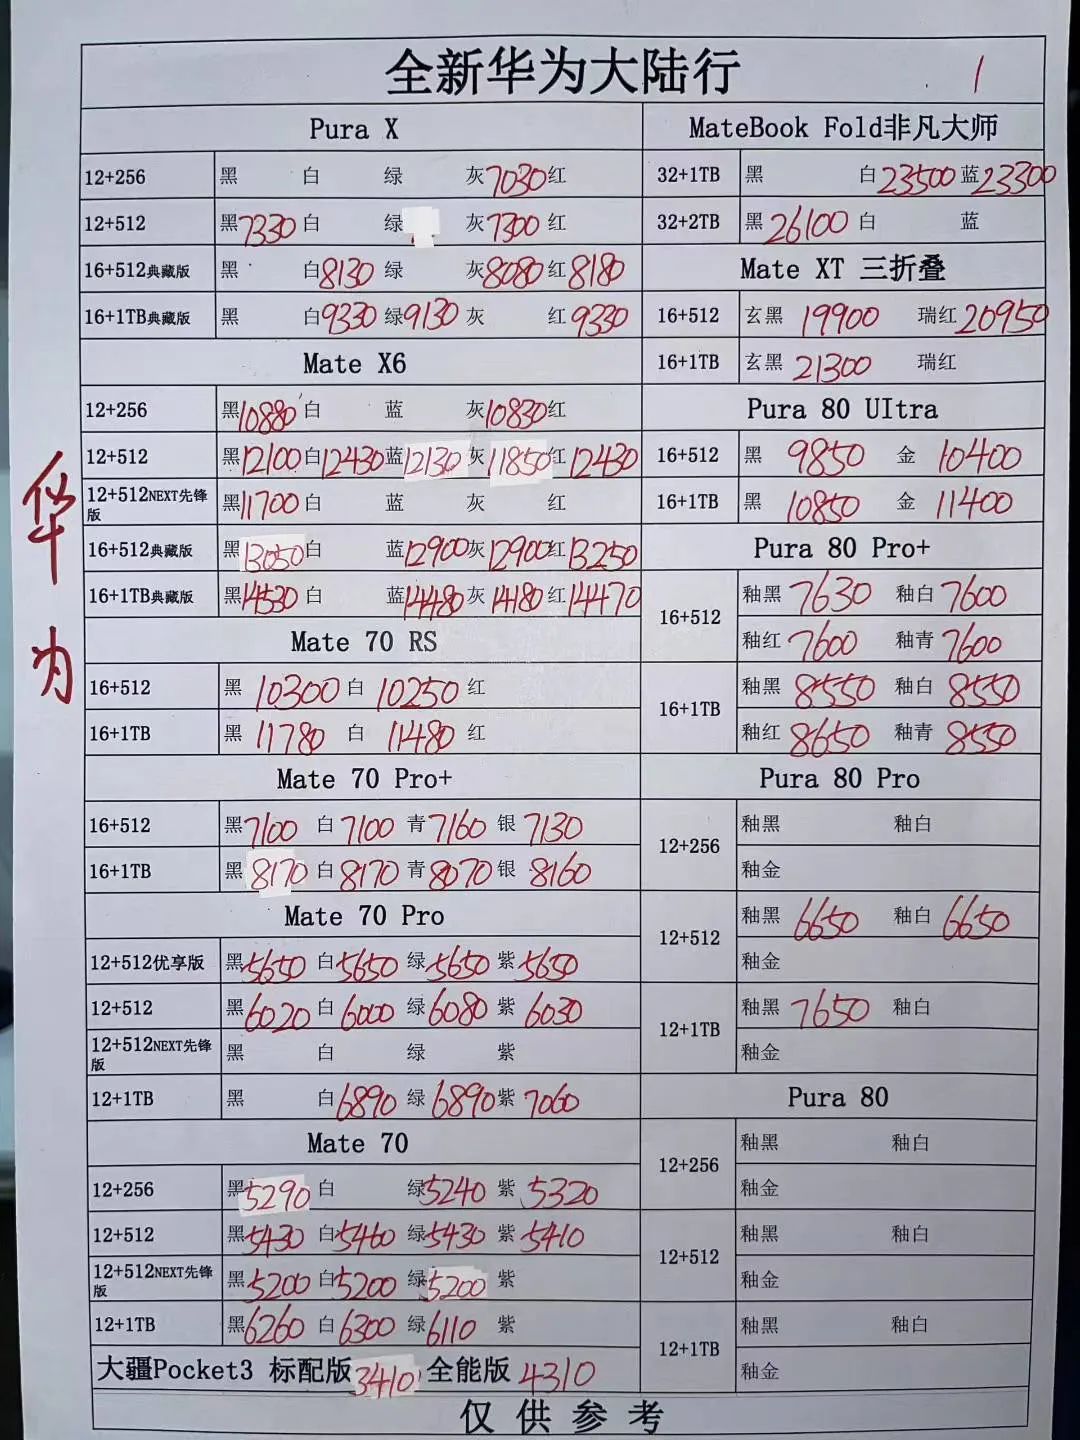 全新华为大陆行 1
华为
Pura X
12+256 黑 白 绿 灰7030 红
12+512 黑7330 白 绿 灰7300 红
16+512典藏版 黑 白8130 绿 灰8080 红8180
16+1TB典藏版 黑 白9330 绿9130 灰 红9330
Mate X6
12+256 黑10880 白 蓝 灰10830 红
12+512 黑12100 白12430 蓝12130 灰11850 红12430
12+512NEXT先锋版 黑11700 白 蓝 灰 红
16+512典藏版 黑13050 白 蓝12900 灰12900 红13250
16+1TB典藏版 黑14530 白 蓝14480 灰14180 红14470
Mate 70 RS
16+512 黑 10300 白 10250 红
16+1TB 黑 11780 白 11480 红
Mate 70 Pro+
16+512 黑7100 白7100 青7160 银7130
16+1TB 黑8170 白8170 青8070 银8160
Mate 70 Pro
12+512优享版 黑5650 白5650 绿5650 紫5650
12+512 黑6020 白6000 绿6080 紫6030
12+512NEXT先锋版 黑 白 绿 紫
12+1TB 黑 白6890 绿6890 紫7060
Mate 70
12+256 黑5290 白 绿5240 紫5320
12+512 黑5430 白5460 绿5430 紫5410
12+512NEXT先锋版 黑5200 白5200 绿5200 紫
12+1TB 黑6260 白6300 绿6110 紫
大疆Pocket3 标配版3410 全能版 4310
MateBook Fold非凡大师
32+1TB 黑 白23500 蓝23300
32+2TB 黑26100 白 蓝
Mate XT 三折叠
16+512 玄黑 19900 瑞红20950
16+1TB 玄黑 21300 瑞红
Pura 80 UItra
16+512 黑 9850 金 10400
16+1TB 黑 10850 金 11400
Pura 80 Pro+
16+512 釉黑7630 釉白7600
釉红7600 釉青7600
16+1TB 釉黑8550 釉白8550
釉红8650 釉青8550
Pura 80 Pro
12+256 釉黑 釉白
釉金
12+512 釉黑6650 釉白6650
釉金
12+1TB 釉黑7650 釉白
釉金
Pura 80
12+256 釉黑 釉白
釉金
12+512 釉黑 釉白
釉金
12+1TB 釉黑 釉白
釉金
仅供参考